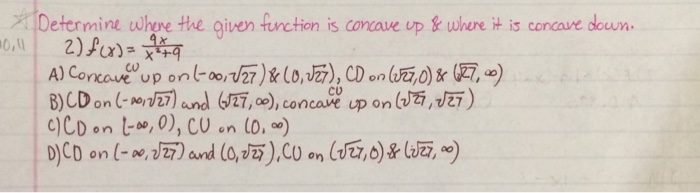 Determine where the given function is concave up & where it is concave down.
10,11
2) f(x) = 9x/x²+9
A) Concave up CU on (-∞,√27) & (0,√27), CD on (√27,0) & (√27, ∞)
B) CD on (-∞,√27) and (√27, ∞), concave up CU on (√27, √27)
C) CD on (-∞, 0), CU on (0, ∞)
D) CD on (-∞, √27) and (0, √27), CU on (√27, 0) & (√27, ∞)